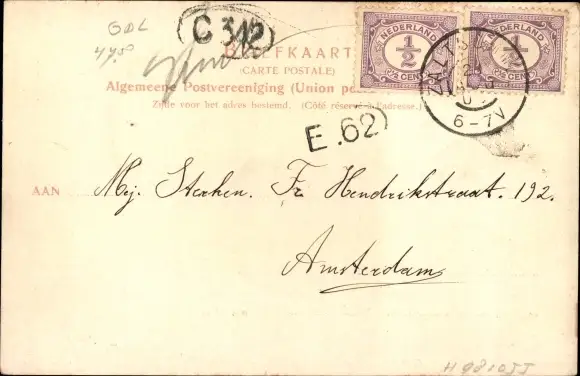 GDL
4750
C 342
NEDERLAND
1/2
1/2 CENT
NEDERLAND
1/2
1/2 CENT
BRIEFKAART
(CARTE POSTALE)
Algemeene Postvereeniging (Union po
Zijde voor het adres bestemd. (Côté réservé à l'adresse.)
6-7V
E.62
AAN Mej. Sterken. Fr. Hendrikstraat. 192.
Amsterdam
H981055